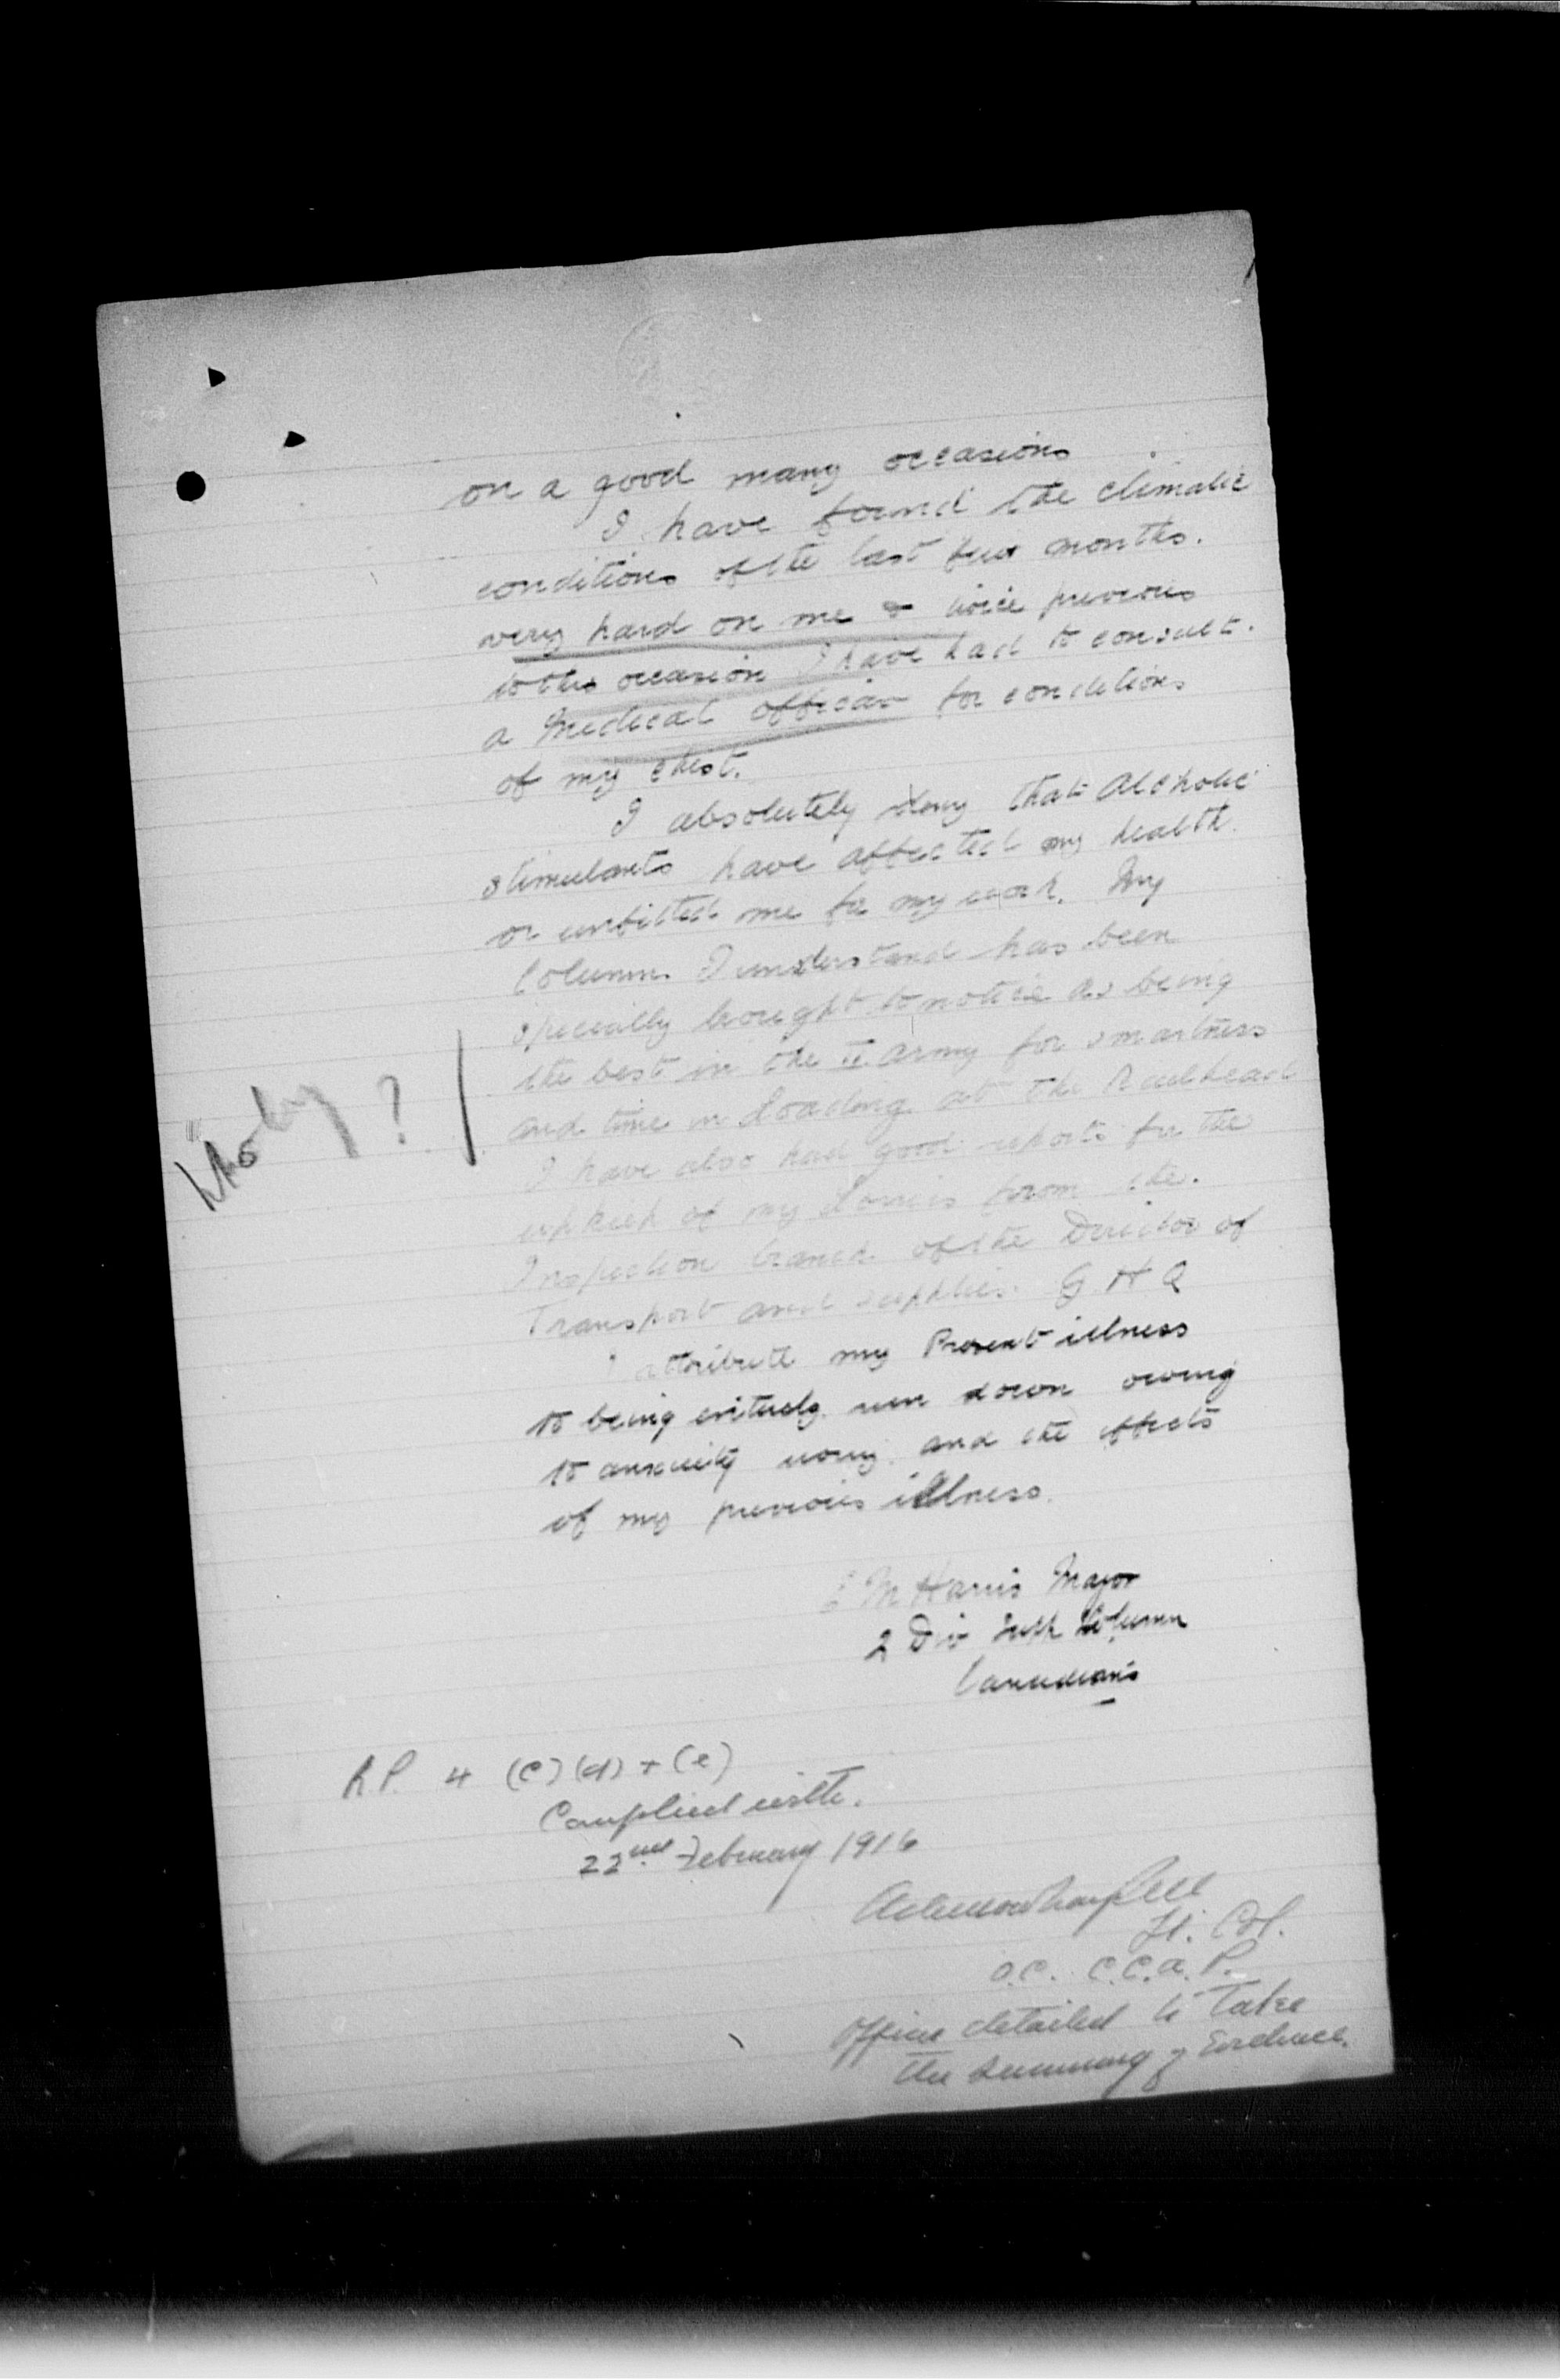 on a good many occasions
I have found the climatic
conditions of the last few months.
very hard on me & twice previous
to this occasion I have had to consult.
a Medical officer for conditions
of my chest.
I absolutely deny that Alcholic
stimulants have affected my health.
or unfitted me for my work. My
Column. I understand has been
specially brought to notice as being
the best in the II Army for smartness
and time in loading at the Railhead
I have also had good reports for the
upkeep of my Lorries from the.
Inspection branch of the Director of
Transport and supplies. G. H Q
Who by ?
I attribute my Present illness
to being entirely run down owing
to anxiety worry. and the effects
of my previous illness.
M Harris Major
2 Div Supp Column
Canadians
R.P. 4 (c) (d) + (e)
Complied with.
22nd February 1916
Lt. Col.
O.C. C.C.A.P.
Officer detailed to take
the Summary of Evidence.